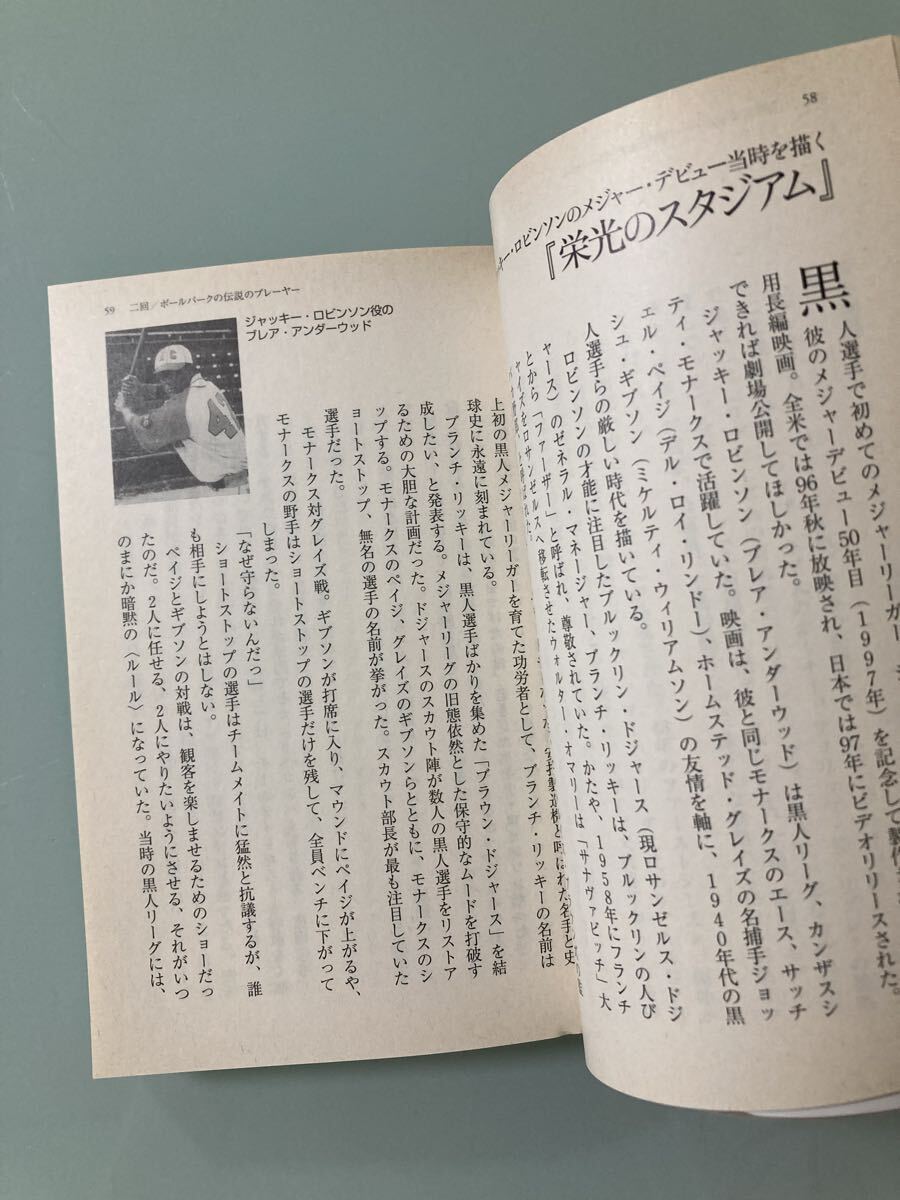 58
キー・ロビンソンのメジャー・デビュー当時を描く
『栄光のスタジアム』
黒人選手で初めてのメジャーリーガー
彼のメジャーデビュー50年目（1997年）を記念して製作
用長編映画。全米では96年秋に放映され、日本では97年にビデオリリースされた。
できれば劇場公開してほしかった。
ジャッキー・ロビンソン（ブレア・アンダーウッド）は黒人リーグ、カンザスシ
ティ・モナークスで活躍していた。映画は、彼と同じモナークスのエース、サッチ
ェル・ペイジ（デル・ロイ・リンドー）、ホームステッド・グレイズの名捕手ジョッ
シュ・ギブソン（ミケルティ・ウィリアムソン）の友情を軸に、1940年代の黒
人選手らの厳しい時代を描いている。
ロビンソンの才能に注目したブルックリン・ドジャース（現ロサンゼルス・ドジ
ャース）のゼネラル・マネージャー、ブランチ・リッキーは、ブルックリンの人び
とから「ファーザー」と呼ばれ、尊敬されていた。かたや、1958年にフランチ
ャイズをロサンゼルスへ移転させたウォルター・オマリーは「サナヴァビッチ」大
と呼ばれた名手と史
上初の黒人メジャーリーガーを育てた功労者として、ブランチ・リッキーの名前は
59 二回/ボールパークの伝説のプレーヤー
ジャッキー・ロビンソン役の
ブレア・アンダーウッド
球史に永遠に刻まれている。
ブランチ・リッキーは、黒人選手ばかりを集めた「ブラウン・ドジャース」を結
成したい、と発表する。メジャーリーグの旧態依然とした保守的なムードを打破す
るための大胆な計画だった。ドジャースのスカウト陣が数人の黒人選手をリストア
ップする。モナークスのペイジ、グレイズのギブソンらとともに、モナークスのシ
ョートストップ、無名の選手の名前が挙がった。スカウト部長が最も注目していた
選手だった。
モナークス対グレイズ戦。ギブソンが打席に入り、マウンドにペイジが上がるや、
モナークスの野手はショートストップの選手だけを残して、全員ベンチに下がって
しまった。
「なぜ守らないんだっ」
ショートストップの選手はチームメイトに猛然と抗議するが、誰
も相手にしようとはしない。
ペイジとギブソンの対戦は、観客を楽しませるためのショーだっ
たのだ。2人に任せる、2人にやりたいようにさせる、それがいつ
のまにか暗黙の〈ルール〉になっていた。当時の黒人リーグには、